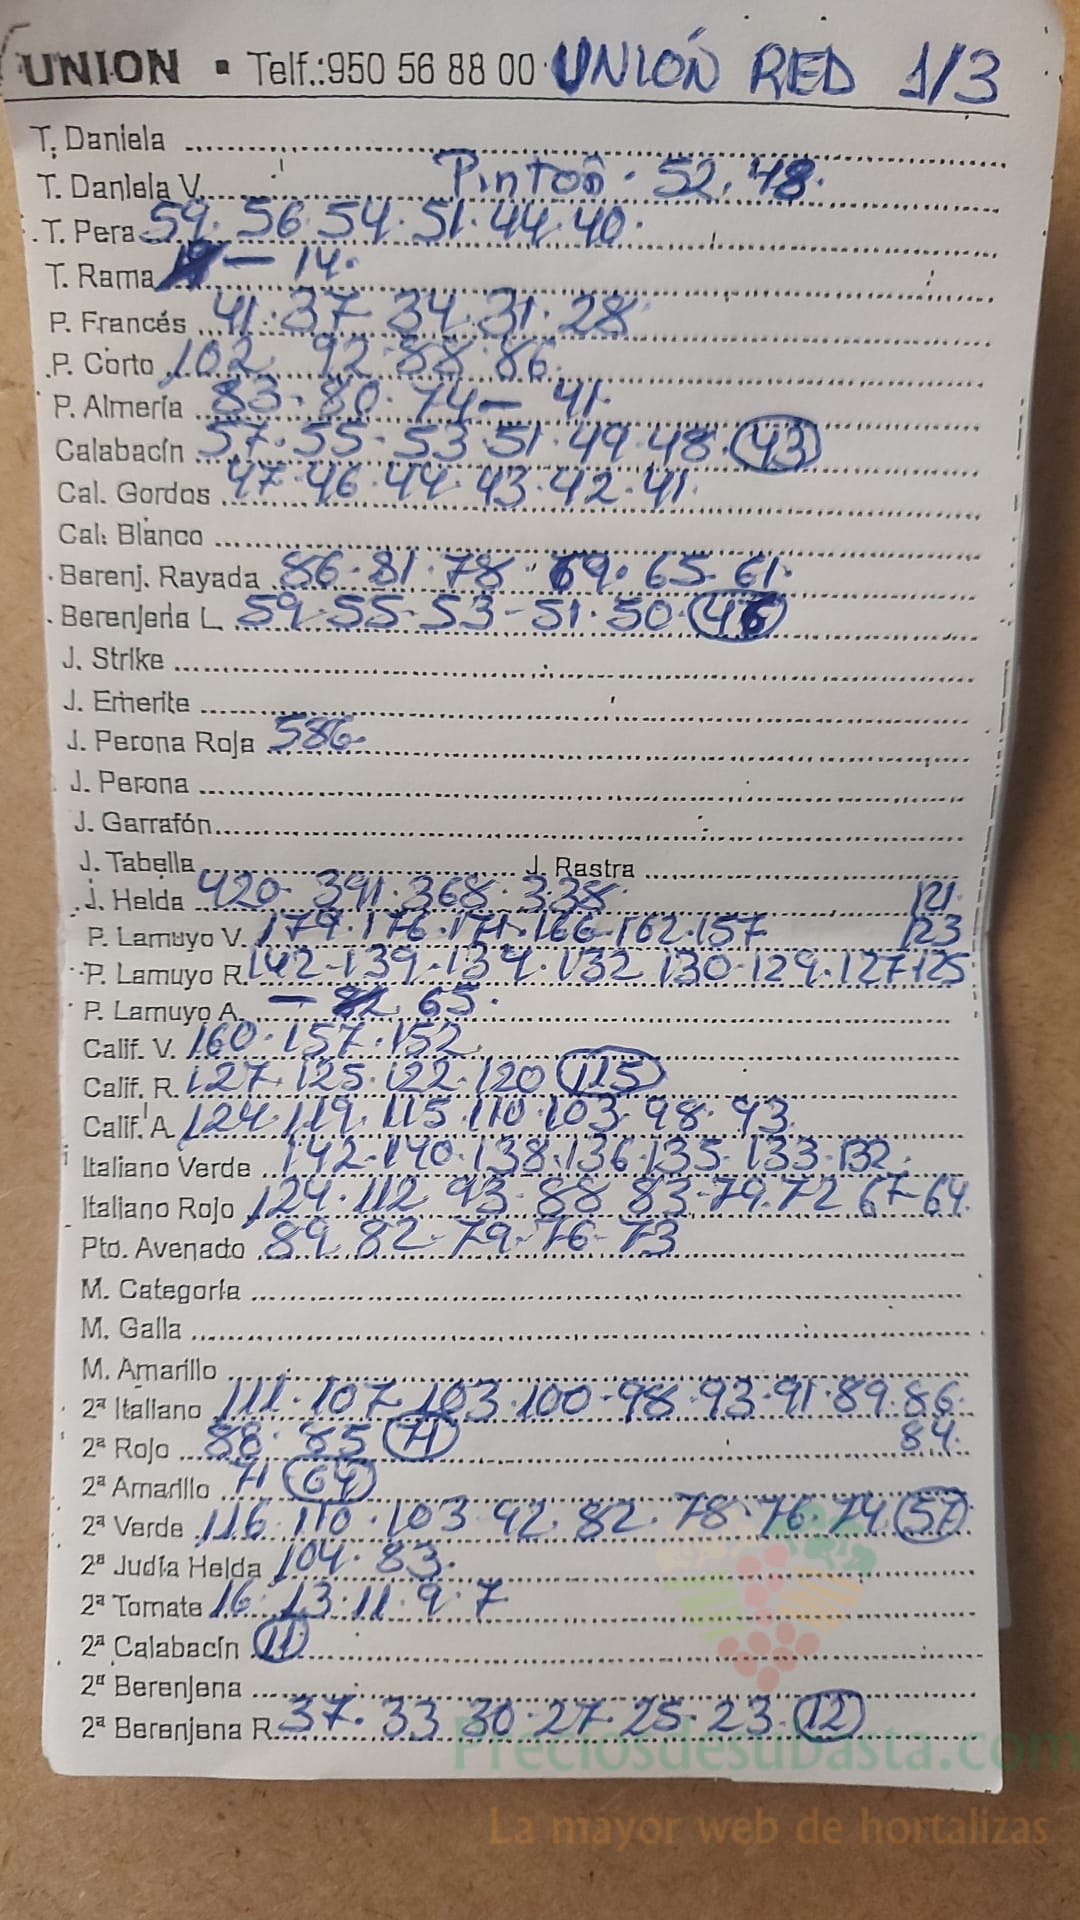 UNION ▪ Telf.:950 56 88 00 UNIÓN RED 1/3
T. Daniela
T. Daniela V. Pintón · 52 · 48 ·
T. Pera 59 · 56 · 54 · 51 · 44 · 40 ·
T. Rama — 14 ·
P. Francés 41 · 37 · 34 · 31 · 28
P. Corto 102 · 92 · 88 · 86
P. Almería 83 - 80 · 74 — 41 ·
Calabacín 57 · 55 - 53 · 51 · 49 · 48 · 43
Cal. Gordos 47 · 46 · 44 · 43 · 42 · 41
Cal. Blanco
Berenj. Rayada 86 · 81 · 78 · 69 · 65 · 61 ·
Berenjena L. 59 · 55 - 53 - 51 · 50 · 46
J. Strike
J. Emerite
J. Perona Roja 586 ·
J. Perona
J. Garrafón
J. Tabella J. Rastra
J. Helda 420 · 391 · 368 · 338 121 ·
P. Lamuyo V. 179 · 176 · 171 · 166 - 162 · 157 123
P. Lamuyo R. 142 - 139 · 134 · 132 130 · 129 · 127 · 125
P. Lamuyo A. — 65 ·
Calif. V. 160 · 157 · 152
Calif. R. 127 · 125 · 122 · 120 115
Calif. A 124 · 119 · 115 · 110 · 103 · 98 · 93
Italiano Verde 142 · 140 · 138 · 136 · 135 · 133 · 132 ·
Italiano Rojo 124 · 112 93 · 88 83 - 79 · 72 67 - 64
Pto. Avenado 89 82 · 79 · 76 - 73
M. Categoría
M. Galla
M. Amarillo
2ª Italiano 111 · 107 · 103 · 100 · 98 · 93 · 91 · 89 · 86 ·
2ª Rojo 88 · 85 71 84 ·
2ª Amarillo 71 64
2ª Verde 116 · 110 · 103 92 · 82 · 78 · 76 · 74 57
2ª Judía Helda 104 · 83 ·
2ª Tomate 16 · 13 · 11 · 9 · 7
2ª Calabacín 11
2ª Berenjena
2ª Berenjena R. 37 · 33 30 · 27 · 25 · 23 · 12
Preciosdesubasta.com
La mayor web de hortalizas